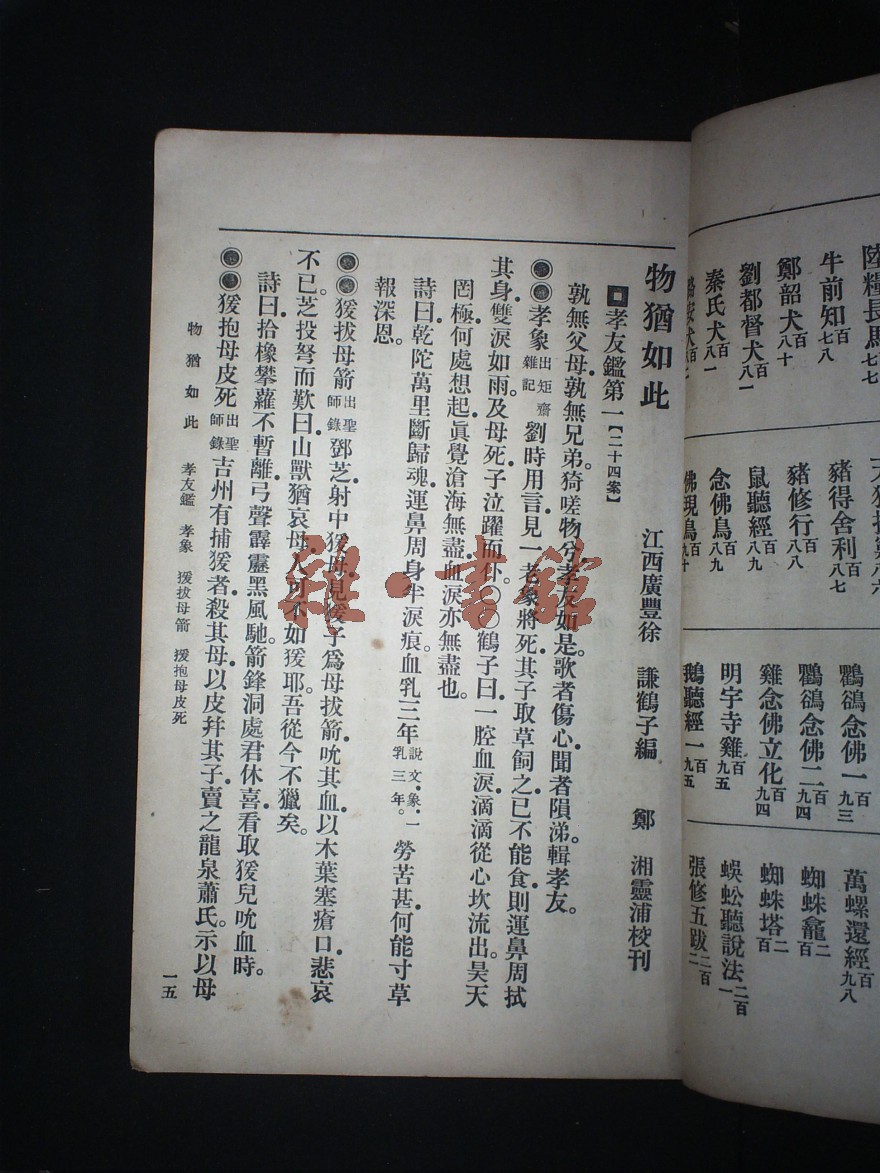 陸糧長馬百七七
牛前知百七八
鄭韶犬百八十
劉都督犬百八一
秦氏犬百八一
豬得舍利百八七
豬修行百八八
鼠聽經百八九
念佛鳥百八九
佛現鳥百九十
鸜鵒念佛一百九三
鸜鵒念佛二百九四
雞念佛立化百九四
明宇寺雞百九五
鵝聽經一百九五
萬螺還經百九八
蜘蛛龕二百
蜘蛛塔二百
蜈蚣聽說法二百一
張修五跋二百二
物猶如此　江西廣豐徐　謙鶴子編　鄭　湘靈浦校刊
孝友鑑第一【二十四案】
孰無父母。孰無兄弟。猗嗟物兮。孝友如是。歌者傷心。聞者隕涕。輯孝友。
孝象出矩齋雜記　劉時用言。見一老象將死。其子取草飼之。已不能食。則運鼻周拭
其身。雙淚如雨。及母死。子泣躍而仆。○○鶴子曰。一腔血淚。滴滴從心坎流出。昊天
罔極。何處想起。眞覺滄海無盡。血淚亦無盡也。
詩曰。乾陀萬里斷歸魂。運鼻周身半淚痕。血乳三年說文。象。一乳三年。勞苦甚。何能寸草
報深恩。
猨拔母箭出聖師錄　鄧芝射中猨母。見猨子爲母拔箭。吮其血。以木葉塞瘡口。悲哀
不已。芝投弩而歎曰。山獸猶哀母。人可不如猨耶。吾從今不獵矣。
詩曰。拾橡攀蘿不暫離。弓聲霹靂黑風馳。箭鋒洞處君休喜。看取猨兒吮血時。
猨抱母皮死出聖師錄　吉州有捕猨者。殺其母。以皮幷其子。賣之龍泉蕭氏。示以母
物猶如此　孝友鑑　孝象　猨拔母箭　猨抱母皮死　一五
雜·書館